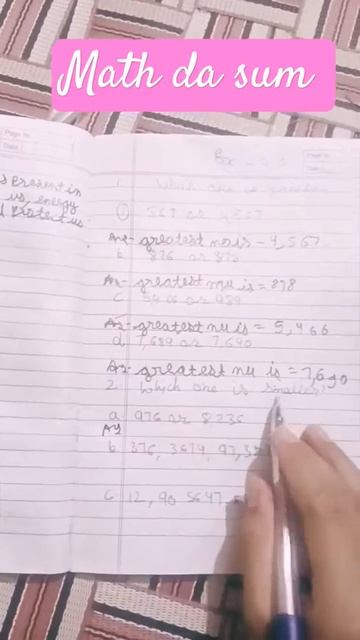 Math da sum
Page No.
Date
s present in
us, energy
protect us
1. Which one is greater
567 or 4,567
Ans- greatest no is - 4,567
b 876 or 878
An- greatest nu is = 878
c 5466 or 989
As- greatest nu is = 5,466
d 7,689 or 7,690
As- greatest nu is = 7,690
2 Which one is smaller?
a 976 or 8236
As
b 376, 3674, 97,35
c 12, 90 5647,